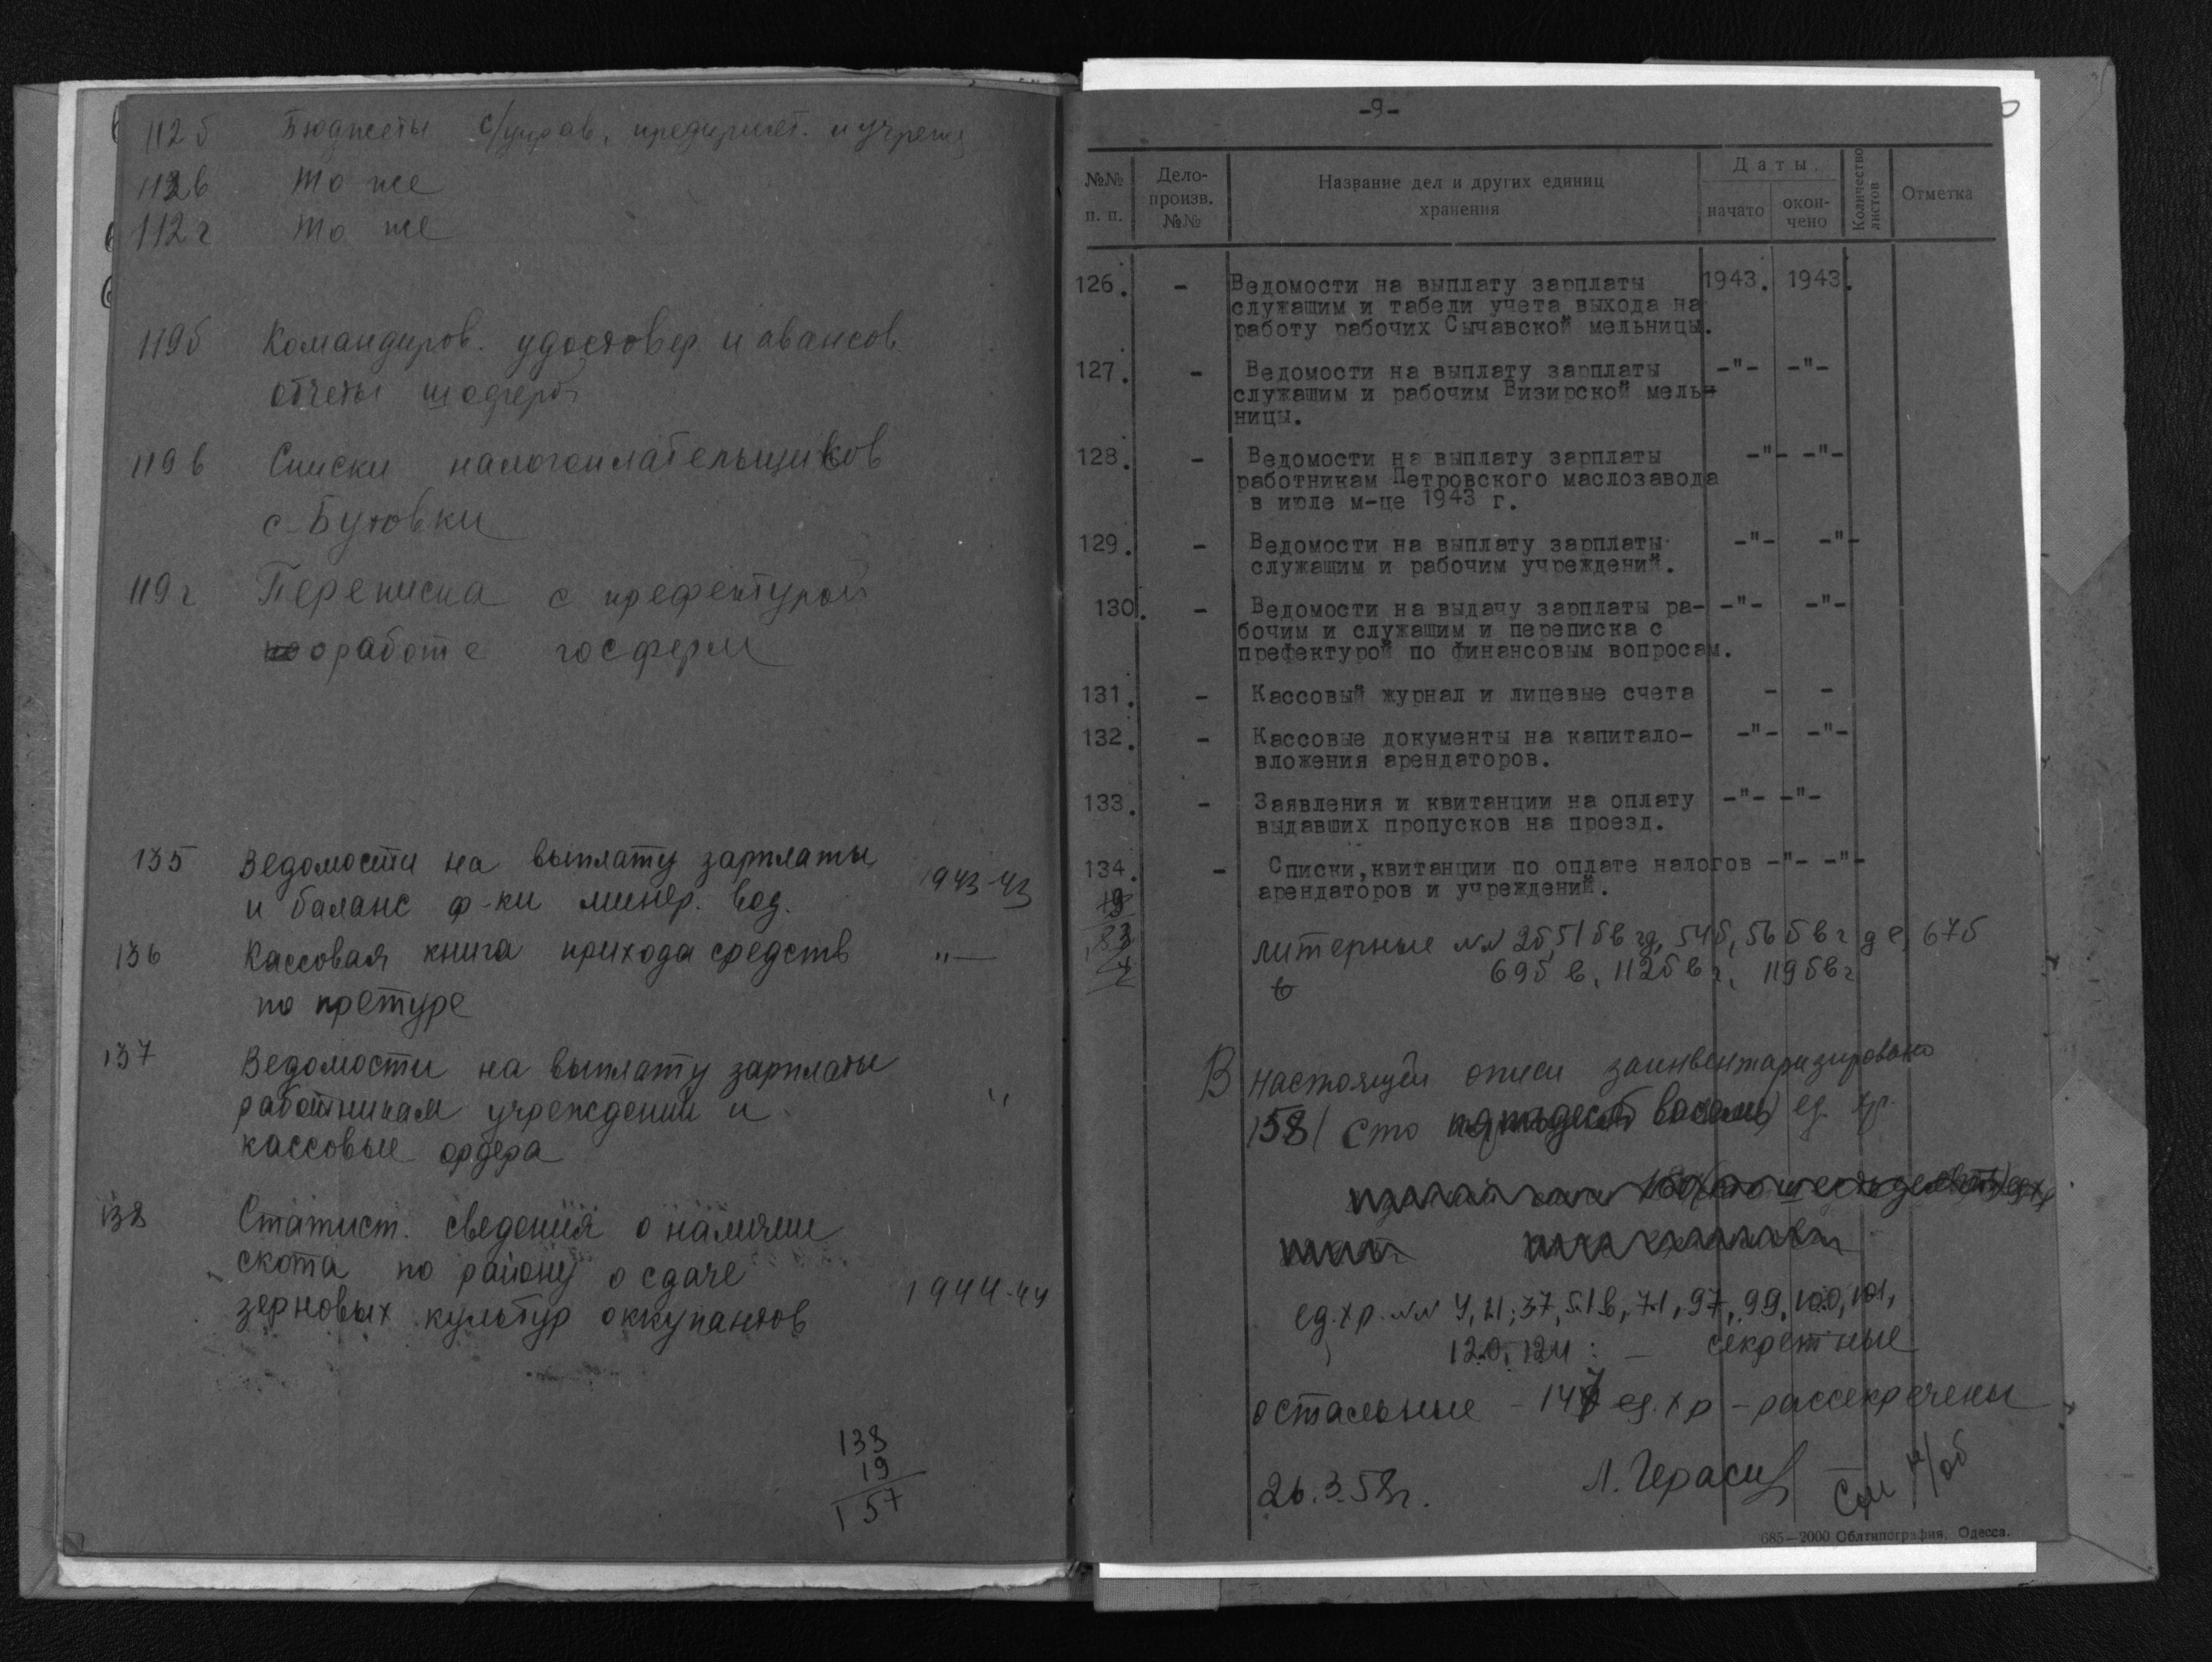 112б Бюджеты с/управ. предприят. и учрежд
112в То же
112г То же
119б Командиров. удостовер. и авансов.
отчеты шоферов
119в Списки налогоплательщиков
с-Бутовки
119г Переписка с префектурой
о работе госферм
135 Ведомости на выплату зарплаты
и баланс ф-ки минер. вод. 1943-43
136 Кассовая книга прихода средств "—
по претуре
137 Ведомости на выплату зарплаты
работникам учреждений и "
кассовые ордера
138 Статист. сведения о наличии
скота по району о сдаче
зерновых культур оккупантов 1944-44
138
19
157
-9-
№№ п. п.
Дело-произв. №№
Название дел и других единиц хранения
Даты
начато
окон-чено
Количество листов
Отметка
126. - Ведомости на выплату зарплаты 1943. 1943.
служащим и табели учета выхода на
работу рабочих Сычавской мельницы.
127. - Ведомости на выплату зарплаты -"- -"-
служащим и рабочим Визирской мель-
ницы.
128. - Ведомости на выплату зарплаты -"- -"-
работникам Петровского маслозавода
в июле м-це 1943 г.
129. - Ведомости на выплату зарплаты -"- -"-
служащим и рабочим учреждений.
130. - Ведомости на выдачу зарплаты ра- -"- -"-
бочим и служащим и переписка с
префектурой по финансовым вопросам.
131. - Кассовый журнал и лицевые счета - -
132. - Кассовые документы на капитало- -"- -"-
вложения арендаторов.
133. - Заявления и квитанции на оплату -"- -"-
выдавших пропусков на проезд.
134. - Списки,квитанции по оплате налогов -"- -"-
арендаторов и учреждений.
литерные №№ 2б, 51бвгд, 54б, 56бвгде, 67б
69б в, 112бвг, 119бвг
В настоящей описи заинвентаризировано
158/ сто пятьдесят восемь) ед. хр.
ед. хр. №№ 4, 21, 37, 51в, 71, 97, 99, 100, 101,
120, 124: — секретные
остальные - 147 ед. хр - рассекречены
26.3.58г. Л. Гераси
См н/об
685—2000 Облтипография, Одесса.